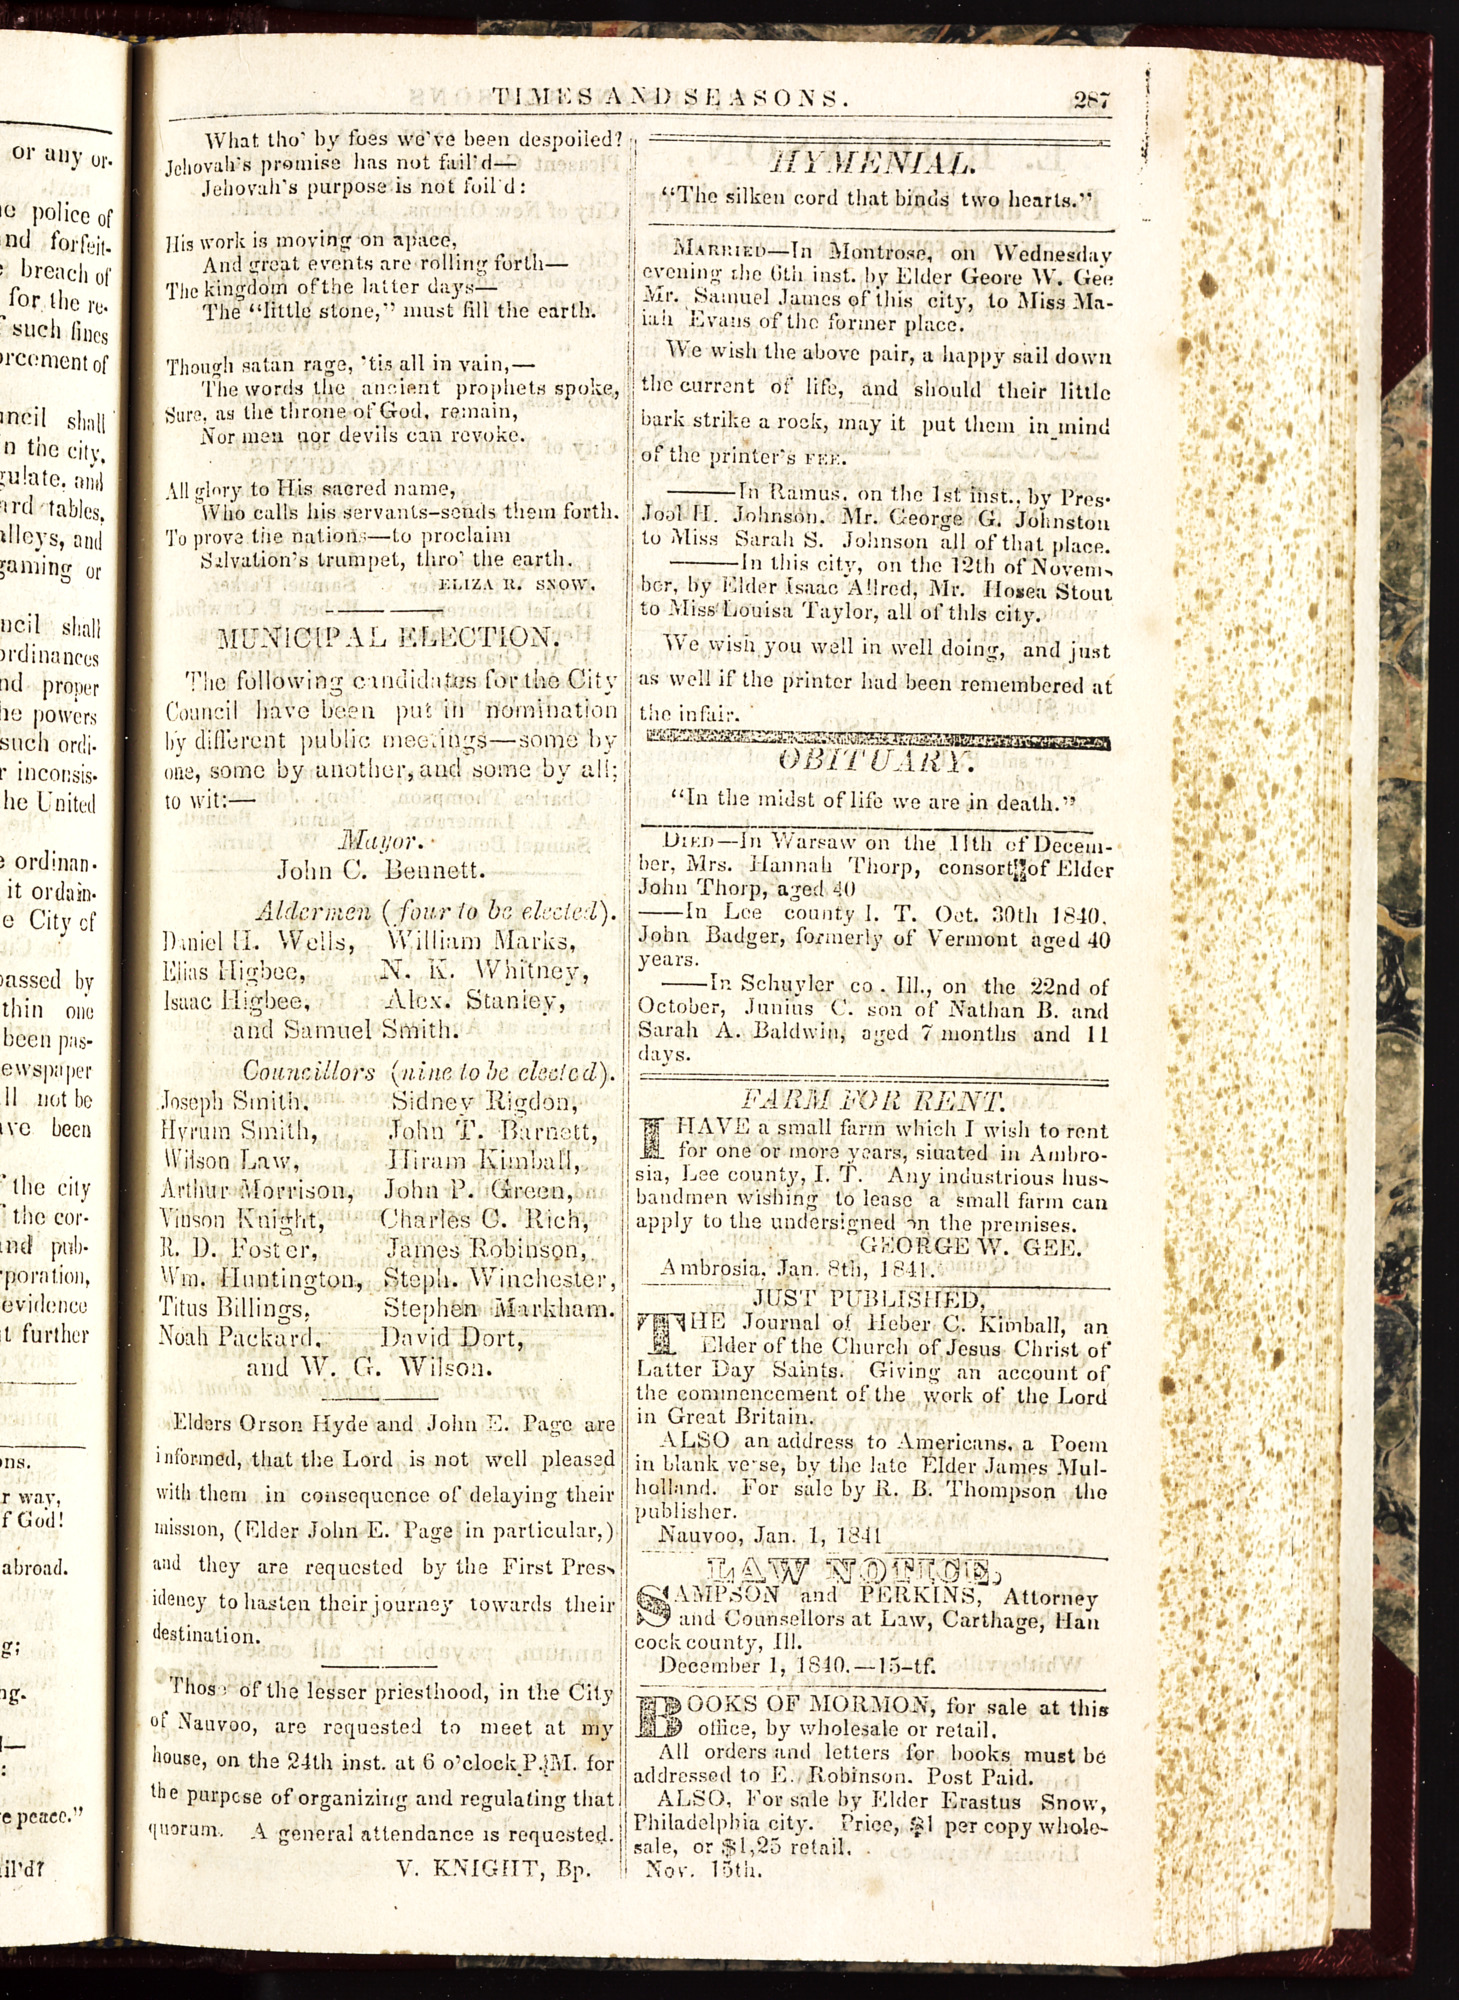 TIMES AND SEASONS.
287
What tho' by foes we've been despoiled?
Jehovah's promise has not fail'd—
Jehovah's purpose is not foil'd:
His work is moving on apace,
And great events are rolling forth—
The kingdom of the latter days—
The "little stone," must fill the earth.
Though satan rage, 'tis all in vain,—
The words the ancient prophets spoke,
Sure, as the throne of God, remain,
Nor men nor devils can revoke.
All glory to His sacred name,
Who calls his servants—sends them forth.
To prove the nations—to proclaim
Salvation's trumpet, thro' the earth.
ELIZA R. SNOW.
MUNICIPAL ELECTION.
The following candidates for the City
Council have been put in nomination
by different public meetings—some by
one, some by another, and some by all;
to wit:—
Mayor.
John C. Bennett.
Aldermen (four to be elected).
Daniel H. Wells, William Marks,
Elias Higbee, N. K. Whitney,
Isaac Higbee, Alex. Stanley,
and Samuel Smith.
Councillors (nine to be elected).
Joseph Smith, Sidney Rigdon,
Hyrum Smith, John T. Barnett,
Wilson Law, Hiram Kimball,
Arthur Morrison, John P. Green,
Vinson Knight, Charles C. Rich,
R. D. Foster, James Robinson,
Wm. Huntington, Steph. Winchester,
Titus Billings, Stephen Markham.
Noah Packard, David Dort,
and W. G. Wilson.
Elders Orson Hyde and John E. Page are
informed, that the Lord is not well pleased
with them in consequence of delaying their
mission, (Elder John E. Page in particular,)
and they are requested by the First Pres-
idency to hasten their journey towards their
destination.
Those of the lesser priesthood, in the City
of Nauvoo, are requested to meet at my
house, on the 24th inst. at 6 o'clock P. M. for
the purpose of organizing and regulating that
quorum. A general attendance is requested.
V. KNIGHT, Bp.
HYMENIAL.
"The silken cord that binds two hearts."
MARRIED—In Montrose, on Wednesday
evening the 6th inst. by Elder Geore W. Gee
Mr. Samuel James of this city, to Miss Ma-
iah Evans of the former place.
We wish the above pair, a happy sail down
the current of life, and should their little
bark strike a rock, may it put them in mind
of the printer's FEE.
——In Ramus, on the 1st inst., by Pres.
Joel H. Johnson. Mr. George G. Johnston
to Miss Sarah S. Johnson all of that place.
——In this city, on the 12th of Novem-
ber, by Elder Isaac Allred, Mr. Hosea Stout
to Miss Louisa Taylor, all of this city.
We wish you well in well doing, and just
as well if the printer had been remembered at
the infair.
OBITUARY.
"In the midst of life we are in death."
DIED—In Warsaw on the 11th of Decem-
ber, Mrs. Hannah Thorp, consort of Elder
John Thorp, aged 40
——In Lee county I. T. Oct. 30th 1840.
John Badger, formerly of Vermont aged 40
years.
——In Schuyler co. Ill., on the 22nd of
October, Junius C. son of Nathan B. and
Sarah A. Baldwin, aged 7 months and 11
days.
FARM FOR RENT.
I HAVE a small farm which I wish to rent
for one or more years, siuated in Ambro-
sia, Lee county, I. T. Any industrious hus-
bandmen wishing to lease a small farm can
apply to the undersigned on the premises.
GEORGE W. GEE.
Ambrosia, Jan. 8th, 1841.
JUST PUBLISHED,
THE Journal of Heber C. Kimball, an
Elder of the Church of Jesus Christ of
Latter Day Saints. Giving an account of
the commencement of the work of the Lord
in Great Britain.
ALSO an address to Americans, a Poem
in blank verse, by the late Elder James Mul-
holland. For sale by R. B. Thompson the
publisher.
Nauvoo, Jan. 1, 1841
LAW NOTICE,
SAMPSON and PERKINS, Attorney
and Counsellors at Law, Carthage, Han
cock county, Ill.
December 1, 1840.—15-tf.
BOOKS OF MORMON, for sale at this
office, by wholesale or retail.
All orders and letters for books must be
addressed to E. Robinson. Post Paid.
ALSO, For sale by Elder Erastus Snow,
Philadelphia city. Price, $1 per copy whole-
sale, or $1,25 retail.
Nov. 15th.
or any or-
police of
forfeit-
breach of
for the re-
such fines
orcement of
shall
the city,
and
tables,
alleys, and
gaming or
shall
ordinances
proper
powers
such ordi-
inconsis-
United
ordinan-
it ordain-
City of
passed by
within one
been pas-
newspaper
not be
been
the city
the cor-
pub-
evidence
further
way,
of God!
abroad.
peace."